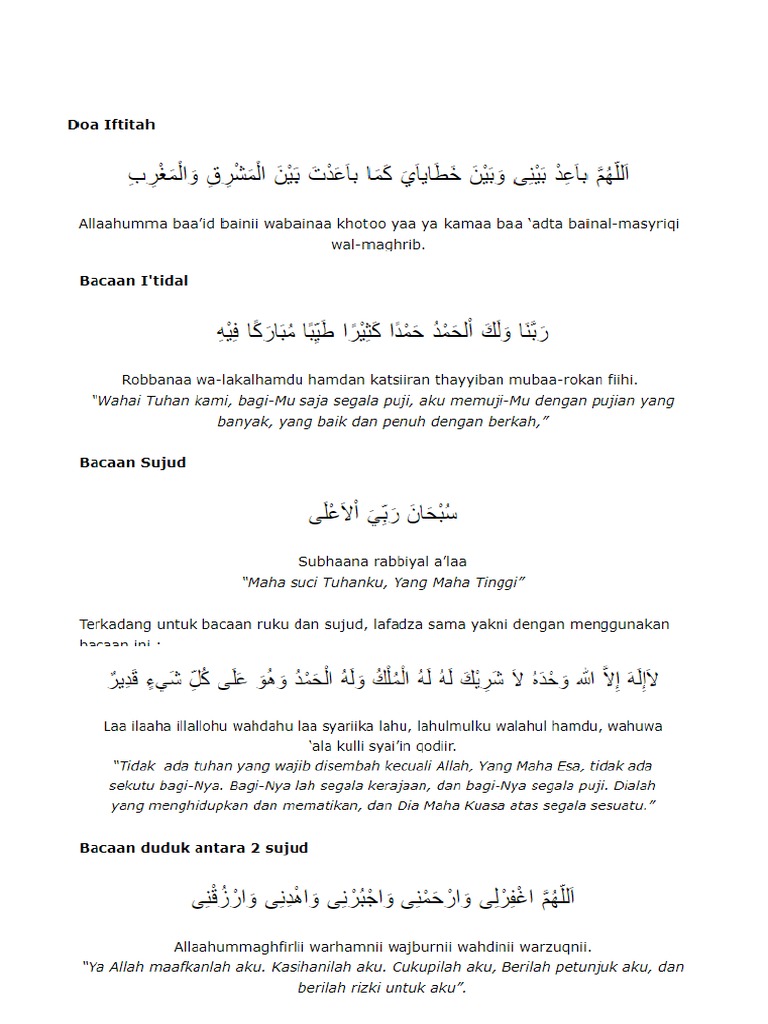 Doa Iftitah
اَللّٰهُمَّ باَعِدْ بَيْنِى وَبَيْنَ خَطَاياَيَ كَمَا باَعَدْتَ بَيْنَ الْمَشْرِقِ وَالْمَغْرِبِ
Allaahumma baa’id bainii wabainaa khotoo yaa ya kamaa baa ‘adta bainal-masyriqi
wal-maghrib.
Bacaan I'tidal
رَبَّنَا وَلَكَ اْلحَمْدُ حَمْدًا كَثِيْرًا طَيِّبًا مُبَارَكًا فِيْهِ
Robbanaa wa-lakalhamdu hamdan katsiiran thayyiban mubaa-rokan fiihi.
“Wahai Tuhan kami, bagi-Mu saja segala puji, aku memuji-Mu dengan pujian yang
banyak, yang baik dan penuh dengan berkah,”
Bacaan Sujud
سُبْحَانَ رَبِّيَ اْلاَعْلَى
Subhaana rabbiyal a’laa
“Maha suci Tuhanku, Yang Maha Tinggi”
Terkadang untuk bacaan ruku dan sujud, lafadza sama yakni dengan menggunakan
bacaan ini :
لاَإِلَهَ إِلاَّ الله وَحْدَهُ لاَ شَرِيْكَ لَهُ لَهُ الْمُلْكُ وَلَهُ الْحَمْدُ وَهُوَ عَلَى كُلِّ شَيءٍ قَدِيرٌ
Laa ilaaha illallohu wahdahu laa syariika lahu, lahulmulku walahul hamdu, wahuwa
‘ala kulli syai’in qodiir.
“Tidak ada tuhan yang wajib disembah kecuali Allah, Yang Maha Esa, tidak ada
sekutu bagi-Nya. Bagi-Nya lah segala kerajaan, dan bagi-Nya segala puji. Dialah
yang menghidupkan dan mematikan, dan Dia Maha Kuasa atas segala sesuatu.”
Bacaan duduk antara 2 sujud
اَللّٰهُمَّ اغْفِرْلِى وَارْحَمْنِى وَاجْبُرْنِى وَاهْدِنِى وَارْزُقْنِى
Allaahummaghfirlii warhamnii wajburnii wahdinii warzuqnii.
“Ya Allah maafkanlah aku. Kasihanilah aku. Cukupilah aku, Berilah petunjuk aku, dan
berilah rizki untuk aku”.